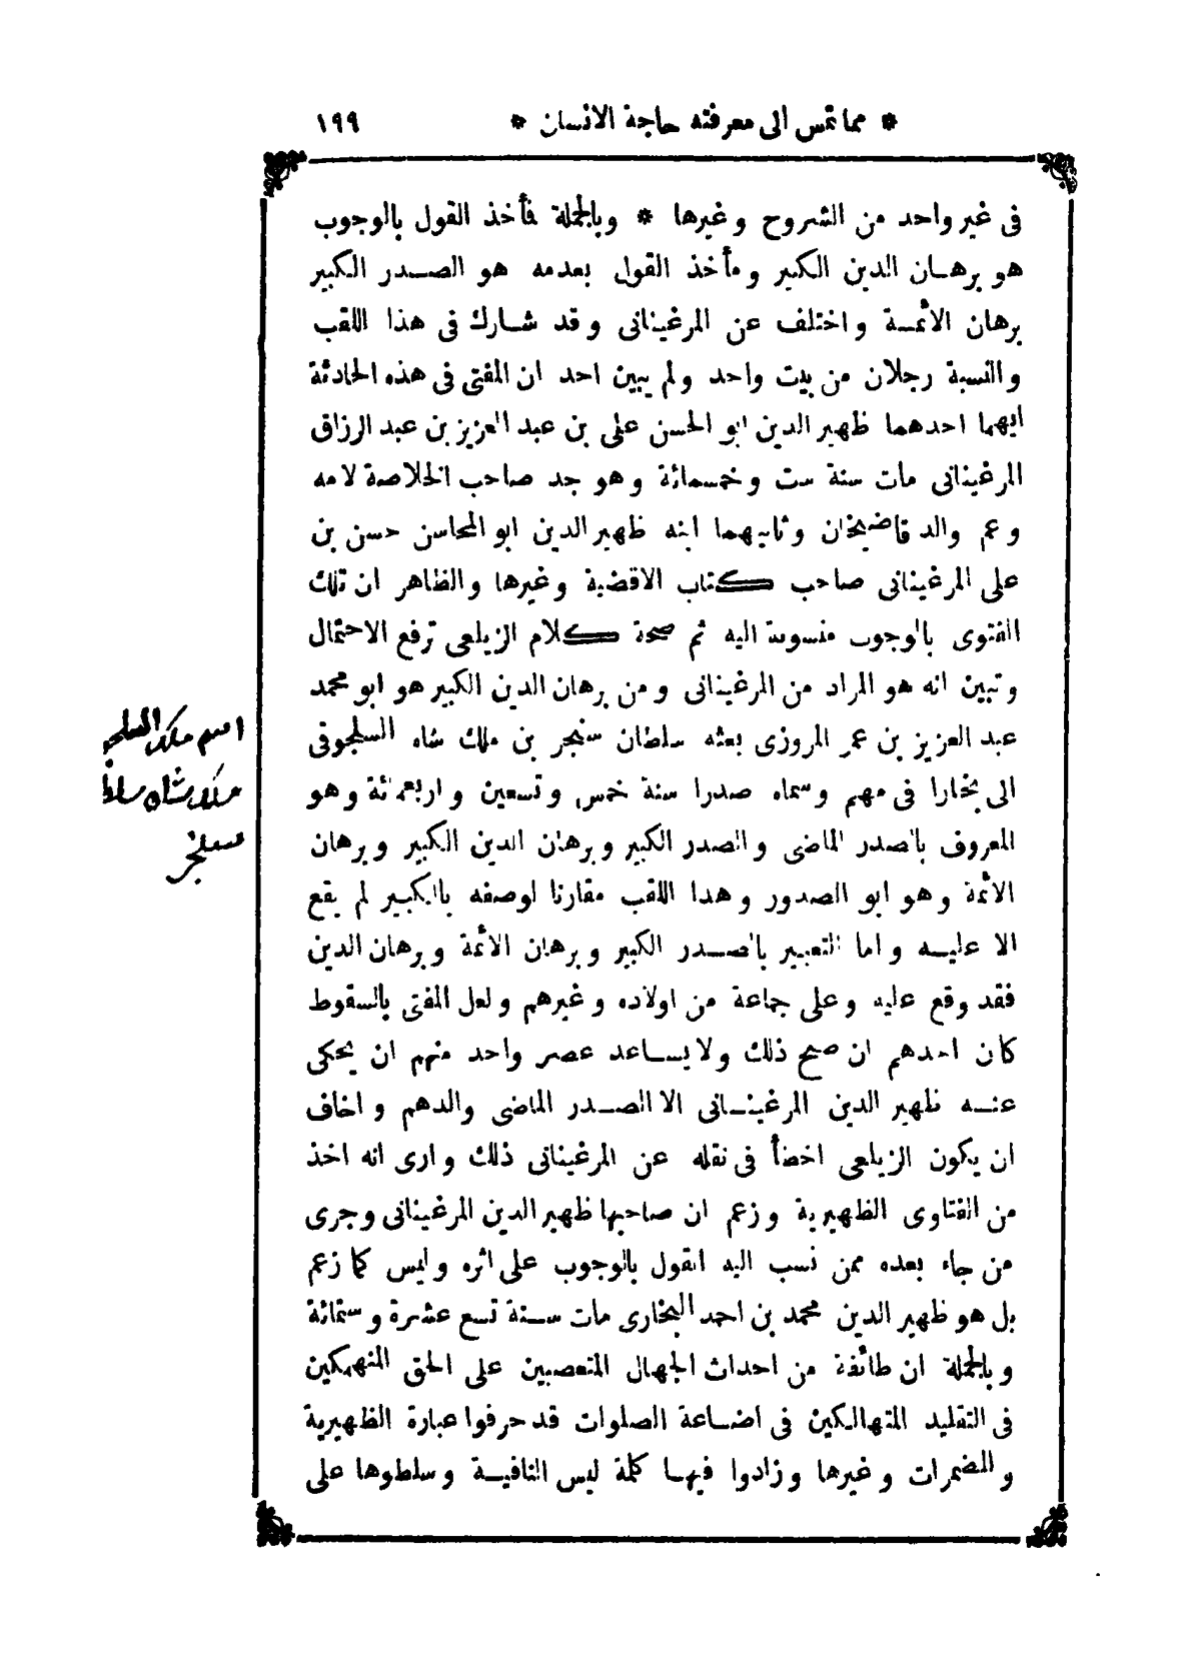 * مما تمس الى معرفته حاجة الانسان * ١٩٩
فى غير واحد من الشروح وغيرها * وبالجملة فأخذ القول بالوجوب
هو برهان الدين الكبير ومأخذ القول بعدمه هو الصدر الكبير
برهان الائمة واختلف عن المرغينانى وقد شارك فى هذا اللقب
والنسبة رجلان من بيت واحد ولم يبين احد ان المفتى فى هذه الحادثة
ايهما احدهما ظهير الدين ابو الحسن على بن عبد العزيز بن عبد الرزاق
المرغينانى مات سنة ست وخمسمائة وهو جد صاحب الخلاصة لامه
وعم والد قاضيخان وثانيهما ابنه ظهير الدين ابو المحاسن حسن بن
على المرغينانى صاحب كتاب الاقضية وغيرها والظاهر ان تلك
الفتوى بالوجوب منسوبة اليه ثم صحة كلام الزيلعى ترفع الاحتمال
وتبين انه هو المراد من المرغينانى ومن برهان الدين الكبير هو ابو محمد
عبد العزيز بن عمر المروزى بعثه سلطان سنجر بن ملك شاه السلجوقى
الى بخارا فى مهم وسماه صدرا سنة خمس وتسعين واربعمائة وهو
المعروف بالصدر الماضى والصدر الكبير وبرهان الدين الكبير وبرهان
الائمة وهو ابو الصدور وهذا اللقب مقارنا لوصفه بالكبير لم يقع
الا عليه واما التعبير بالصدر الكبير وبرهان الائمة وبرهان الدين
فقد وقع عليه وعلى جماعة من اولاده وغيرهم ولعل المفتى بالسقوط
كان احدهم ان صح ذلك ولا يساعد عصر واحد منهم ان يحكى
عنه ظهير الدين المرغينانى الا الصدر الماضى والدهم واخاف
ان يكون الزيلعى اخطأ فى نقله عن المرغينانى ذلك وارى انه اخذ
من الفتاوى الظهيرية وزعم ان صاحبها ظهير الدين المرغينانى وجرى
من جاء بعده ممن نسب اليه القول بالوجوب على اثره وليس كما زعم
بل هو ظهير الدين محمد بن احمد البخارى مات سنة تسع عشرة وستمائة
وبالجملة ان طائفة من احداث الجهال المتعصبين على الحق المنهمكين
فى التقليد المتهالكين فى اضاعة الصلوات قد حرفوا عبارة الظهيرية
والمضمرات وغيرها وزادوا فيها كلمة ليس النافية وسلطوها على
اسم ملك
ملك شاه
سنجر